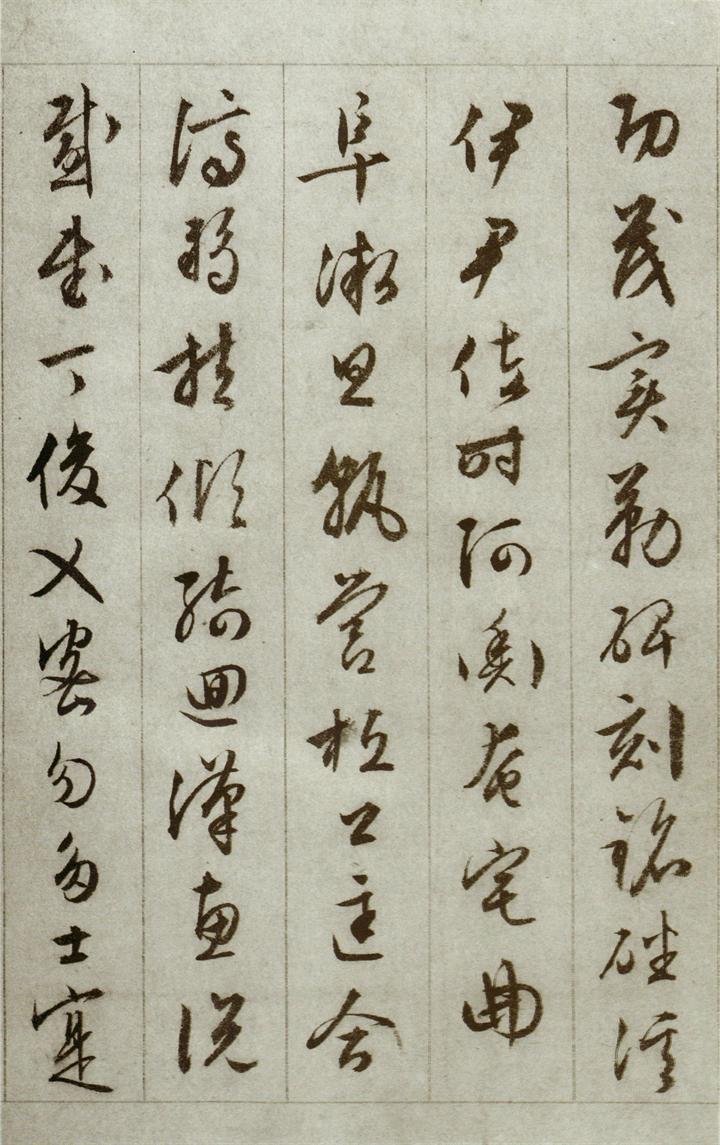 功茂實勒碑刻銘磻溪
伊尹佐時阿衡奄宅曲
阜微旦孰營桓公匡合
濟弱扶傾綺迴漢惠說
感武丁俊乂密勿多士寔